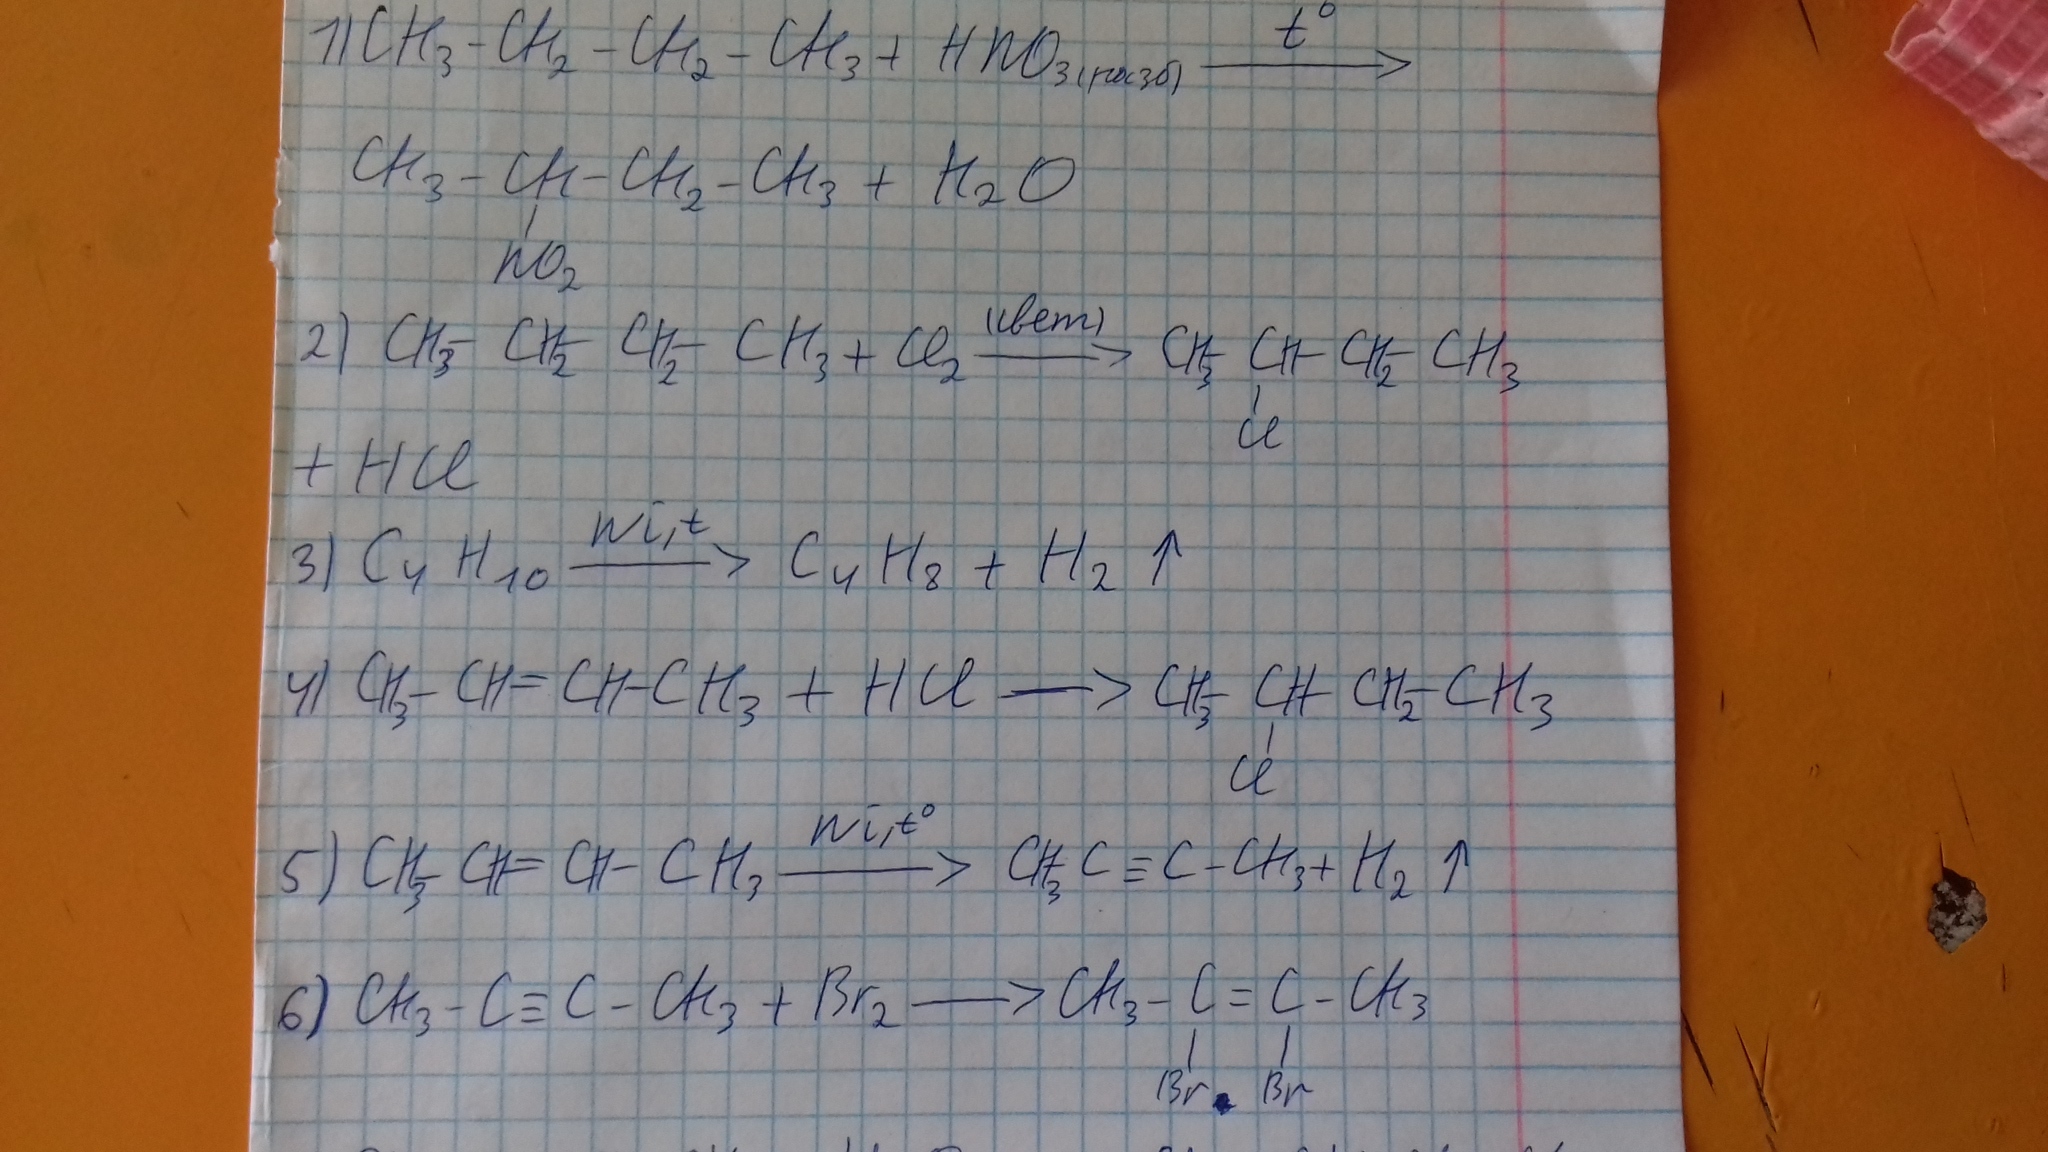 1) CH₃ - CH₂ - CH₂ - CH₃ + HNO₃(разб) t° →
CH₃ - CH - CH₂ - CH₃ + H₂O
NO₂
2) CH₃ - CH₂ - CH₂ - CH₃ + Cl₂ (свет) → CH₃ - CH - CH₂ - CH₃
Cl
+ HCl
3) C₄H₁₀ Ni, t → C₄H₈ + H₂ ↑
4) CH₃ - CH = CH - CH₃ + HCl → CH₃ - CH - CH₂ - CH₃
Cl
5) CH₃ - CH = CH - CH₃ Ni, t° → CH₃ C ≡ C - CH₃ + H₂ ↑
6) CH₃ - C ≡ C - CH₃ + Br₂ → CH₃ - C = C - CH₃
Br Br